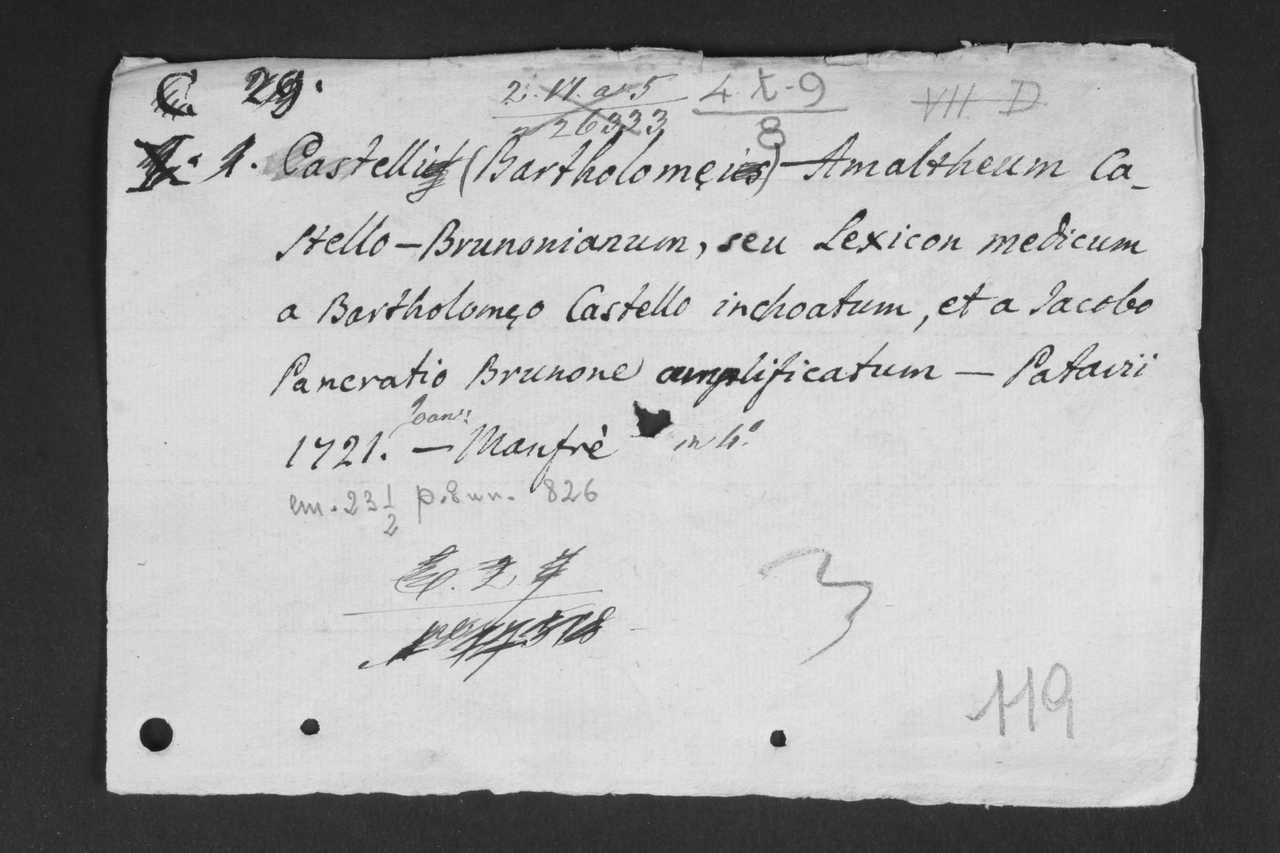 C. 29.
2. 11. a 5 4 t-9 VII D
26323 8
1. Castelli (Bartholomęi) Amaltheum Ca-
stello-Brunonianum, seu Lexicon medicum
a Bartholomęo Castello inchoatum, et a Jacobo
Pancratio Brunone amplificatum — Patavii
Joan:
1721. — Manfrè in 4º
cm. 23 1/2 p. 826
3
119